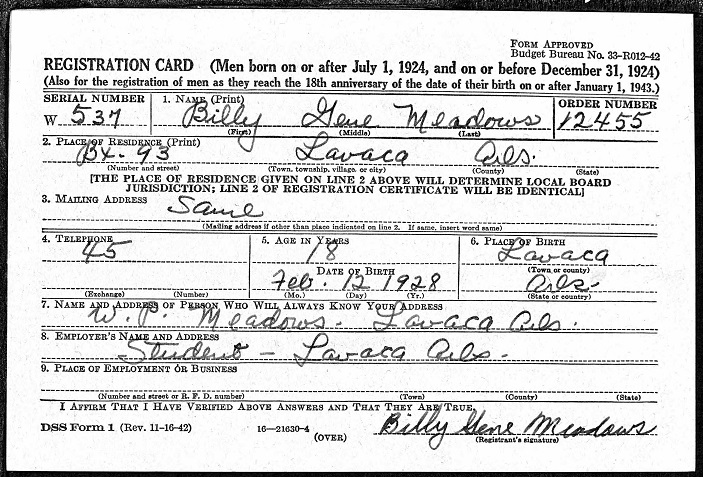 FORM APPROVED
Budget Bureau No. 33-R012-42
REGISTRATION CARD (Men born on or after July 1, 1924, and on or before December 31, 1924)
(Also for the registration of men as they reach the 18th anniversary of the date of their birth on or after January 1, 1943.)
SERIAL NUMBER 1. NAME (Print) ORDER NUMBER
W 537 Billy Gene Meadows 12455
(First) (Middle) (Last)
2. PLACE OF RESIDENCE (Print)
Bx. 93 Lavaca Ark.
(Number and street) (Town, township, village, or city) (County) (State)
[THE PLACE OF RESIDENCE GIVEN ON LINE 2 ABOVE WILL DETERMINE LOCAL BOARD
JURISDICTION; LINE 2 OF REGISTRATION CERTIFICATE WILL BE IDENTICAL]
3. MAILING ADDRESS
Same
(Mailing address if other than place indicated on line 2. If same, insert word same)
4. TELEPHONE 5. AGE IN YEARS 6. PLACE OF BIRTH
45 18 Lavaca
DATE OF BIRTH (Town or county)
Feb. 12 1928 Ark.
(Exchange) (Number) (Mo.) (Day) (Yr.) (State or country)
7. NAME AND ADDRESS OF PERSON WHO WILL ALWAYS KNOW YOUR ADDRESS
W. P. Meadows. Lavaca Ark.
8. EMPLOYER'S NAME AND ADDRESS
Student - Lavaca Ark.
9. PLACE OF EMPLOYMENT OR BUSINESS
(Number and street or R. F. D. number) (Town) (County) (State)
I AFFIRM THAT I HAVE VERIFIED ABOVE ANSWERS AND THAT THEY ARE TRUE.
DSS Form 1 (Rev. 11-16-42) 16-21630-4 (OVER) Billy Gene Meadows
(Registrant's signature)